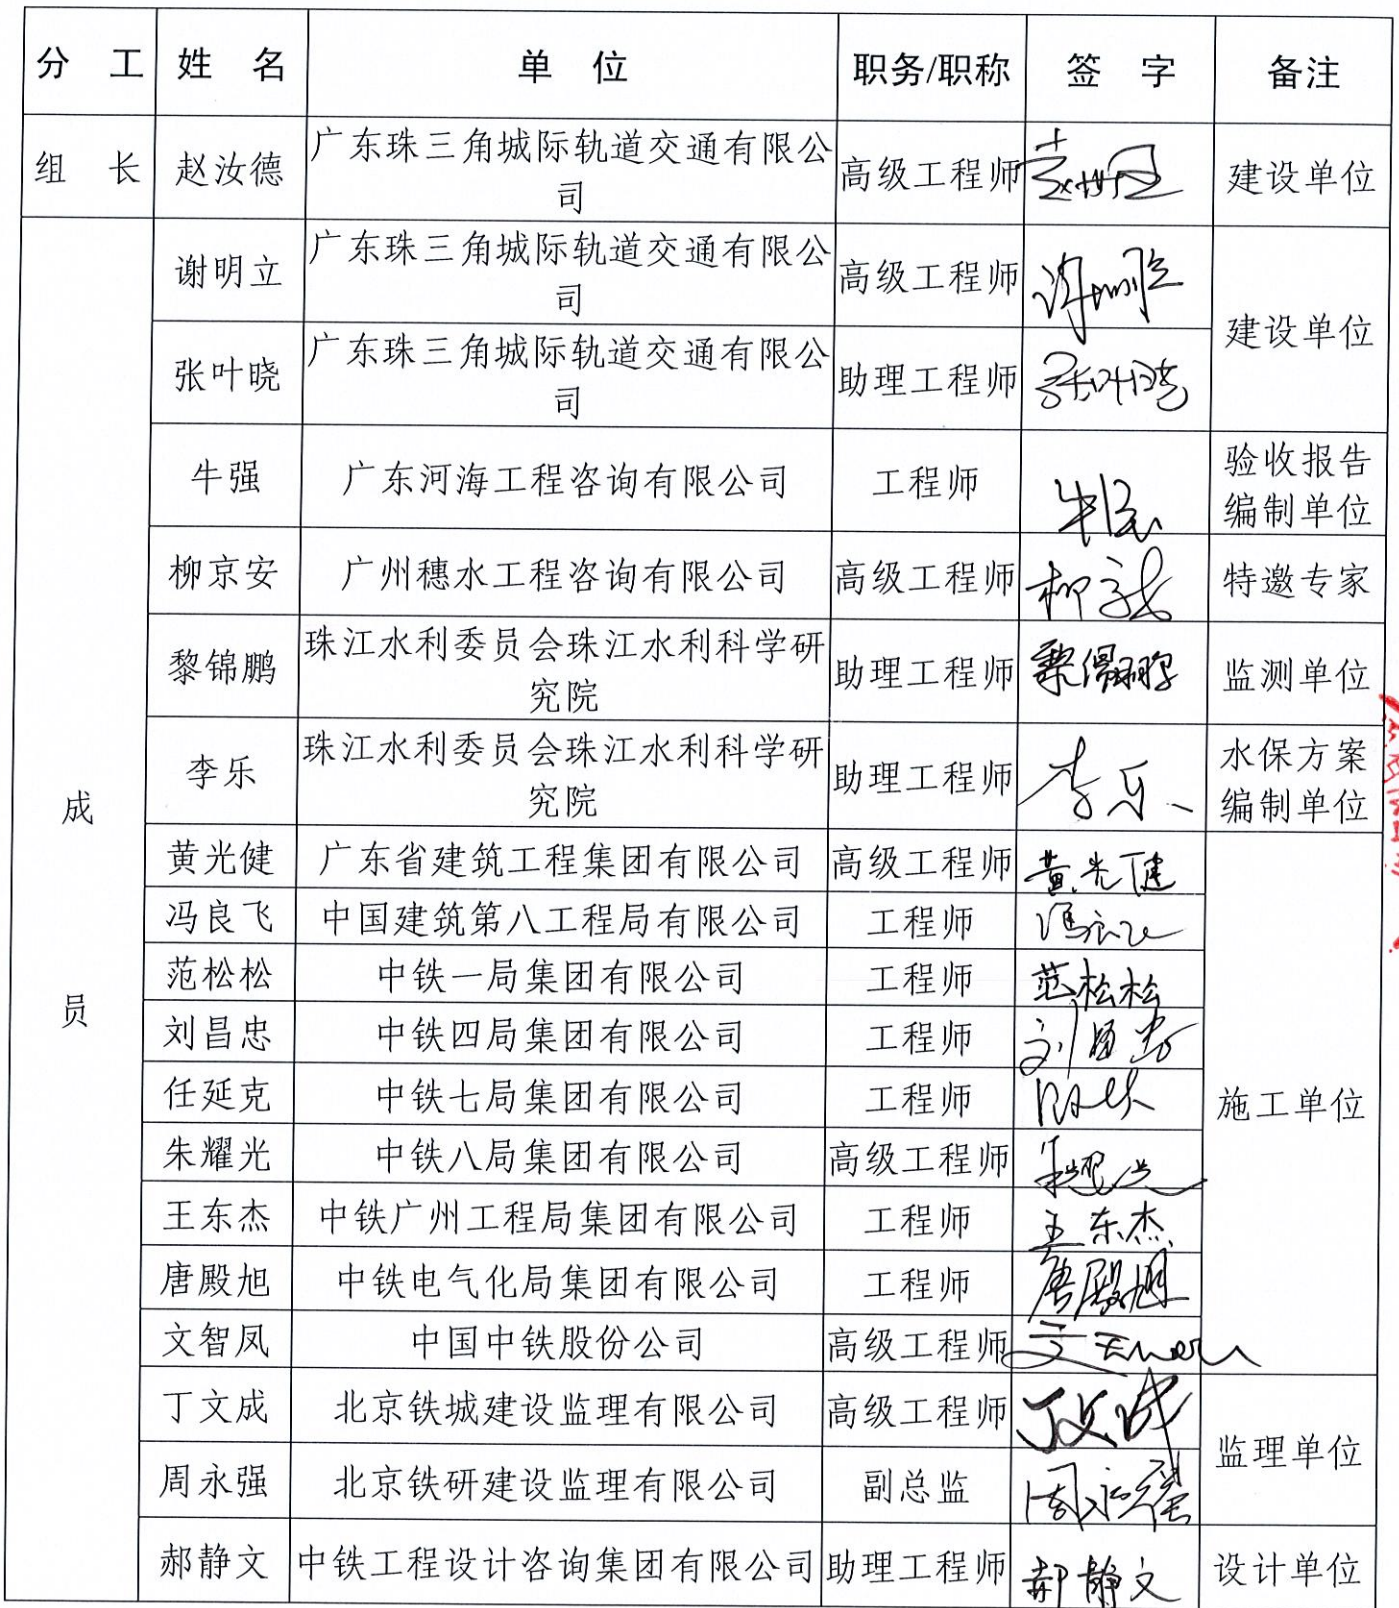 分 工 姓 名 单 位 职务/职称 签 字 备注
组 长 赵汝德 广东珠三角城际轨道交通有限公 高级工程师 赵汝德 建设单位
司
谢明立 广东珠三角城际轨道交通有限公 高级工程师 谢明立
司
建设单位
张叶晓 广东珠三角城际轨道交通有限公 助理工程师 张叶晓
司
牛强 广东河海工程咨询有限公司 工程师 牛强 验收报告
编制单位
柳京安 广州穗水工程咨询有限公司 高级工程师 柳京安 特邀专家
黎锦鹏 珠江水利委员会珠江水利科学研 助理工程师 黎锦鹏 监测单位
究院
李乐 珠江水利委员会珠江水利科学研 助理工程师 李乐 水保方案
究院 编制单位
成
员
黄光健 广东省建筑工程集团有限公司 高级工程师 黄光健
冯良飞 中国建筑第八工程局有限公司 工程师 冯良飞
范松松 中铁一局集团有限公司 工程师 范松松
刘昌忠 中铁四局集团有限公司 工程师 刘昌忠
任延克 中铁七局集团有限公司 工程师
施工单位
朱耀光 中铁八局集团有限公司 高级工程师 朱耀光
王东杰 中铁广州工程局集团有限公司 工程师 王东杰
唐殿旭 中铁电气化局集团有限公司 工程师 唐殿旭
文智凤 中国中铁股份公司 高级工程师
丁文成 北京铁城建设监理有限公司 高级工程师 丁文成
监理单位
周永强 北京铁研建设监理有限公司 副总监 周永强
郝静文 中铁工程设计咨询集团有限公司 助理工程师 郝静文 设计单位